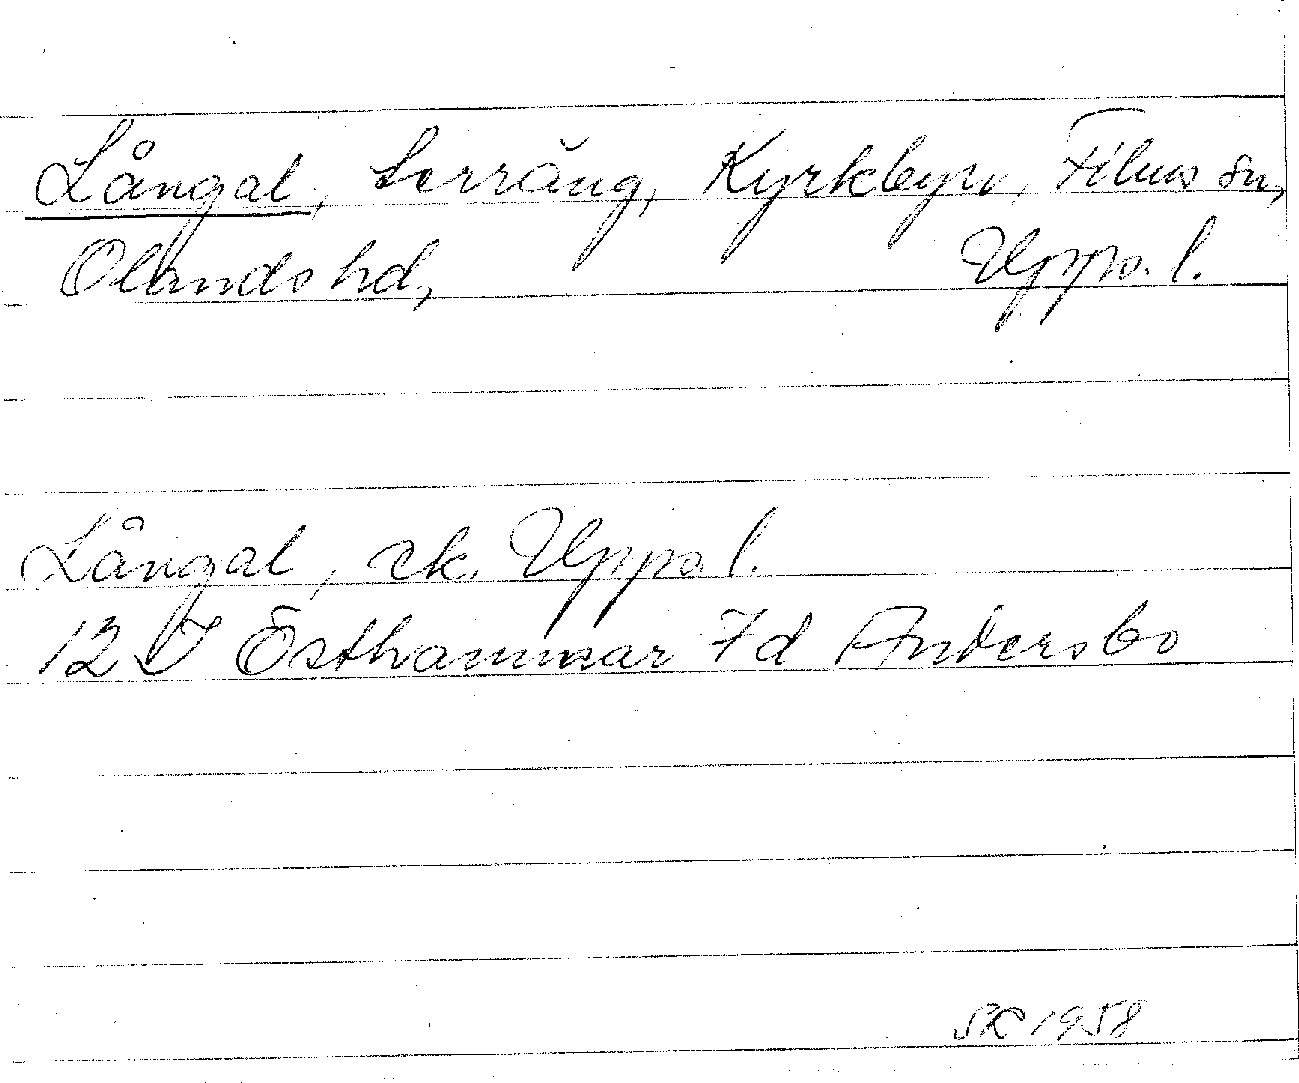 Långal, terräng, Kyrkbyn, Films sn,
Olands hd, Upps. l.
Långal, ek. Upps. l.
12 I Östhammar 7d Andersbo
SK 1958